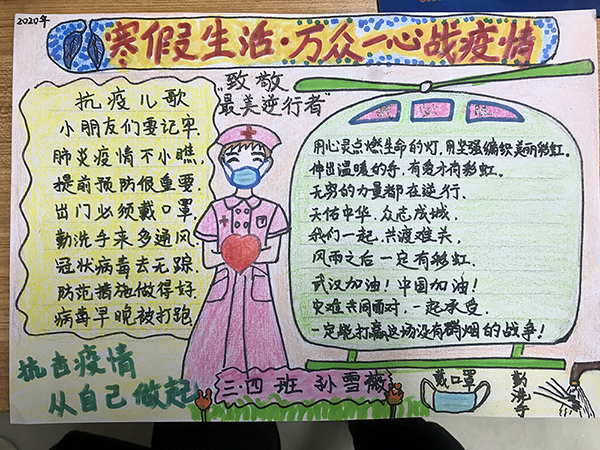 2020年
寒假生活·万众一心战疫情
"致敬
最美逆行者"
抗疫儿歌
小朋友们要记牢,
肺炎疫情不小瞧,
提前预防很重要.
出门必须戴口罩,
勤洗手来多通风.
冠状病毒去无踪.
防范措施做得好.
病毒早晚被打跑.
用心灵点燃生命的灯,用坚强编织美丽彩虹。
伸出温暖的手,有爱才有彩虹.
无穷的力量都在逆行.
天佑中华.众志成城,
我们一起,共渡难关,
风雨之后一定有彩虹.
武汉加油!中国加油!
灾难共同面对,一起承受.
一定能打赢这场没有硝烟的战争!
抗击疫情
从自己做起
三.四班 孙雪薇
戴口罩
勤洗手